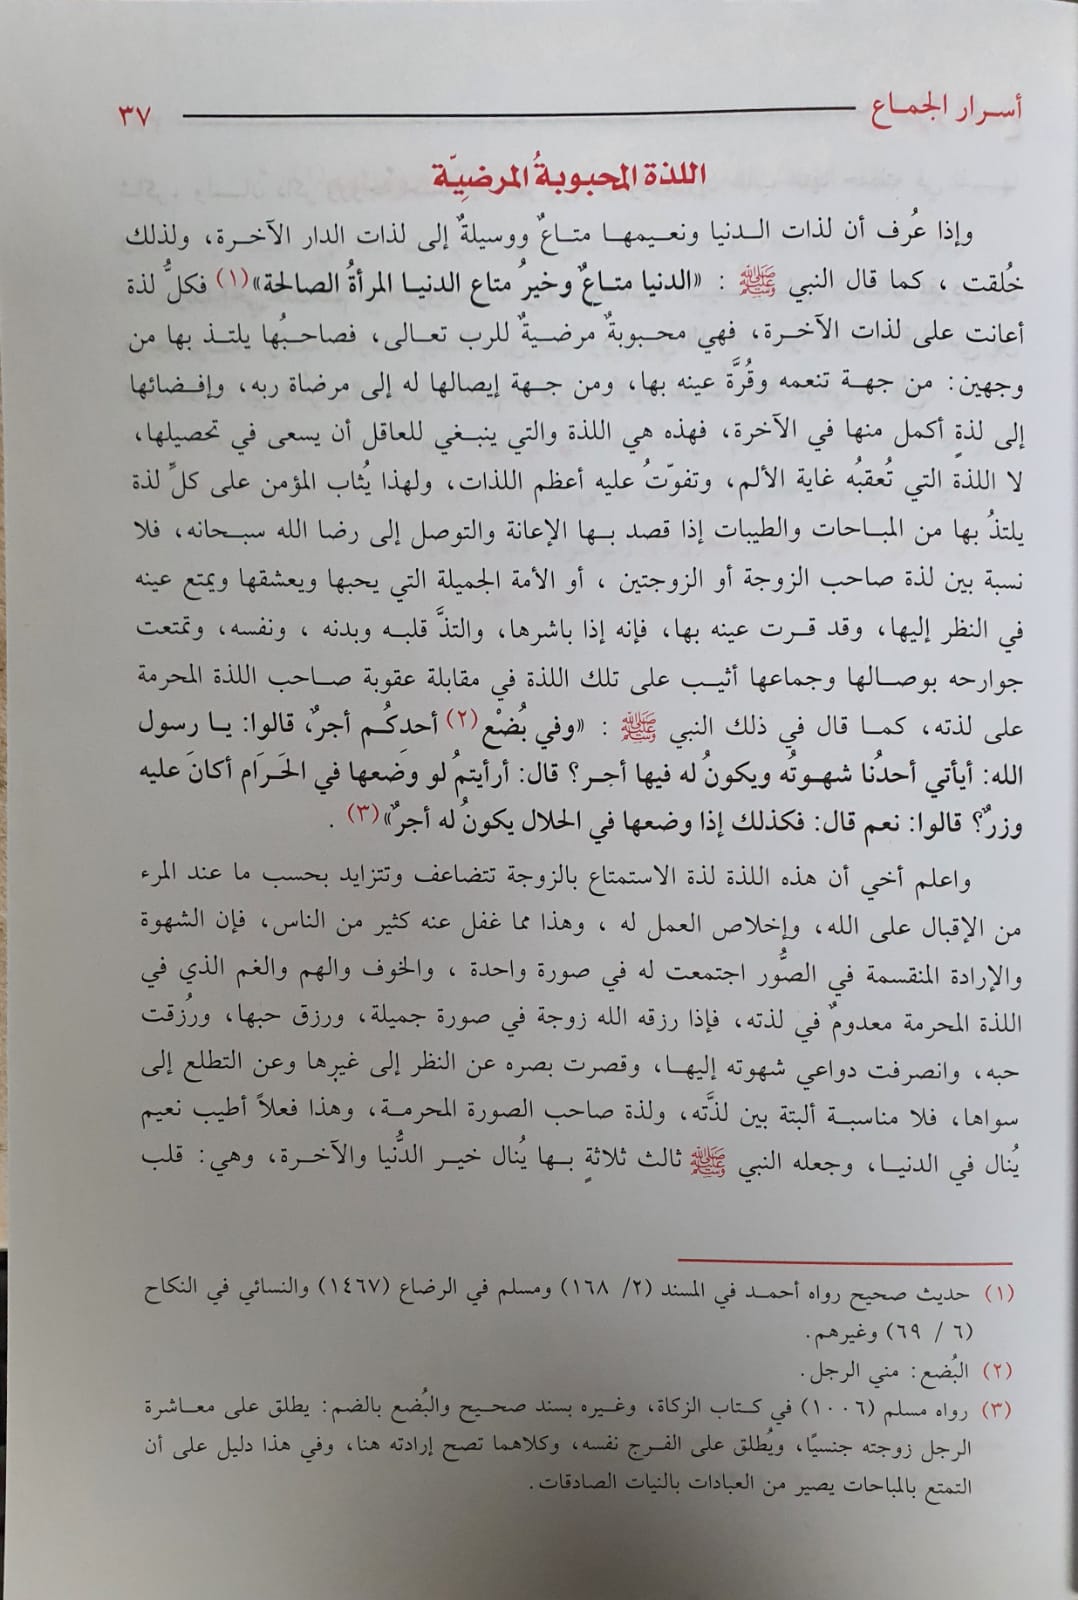 أسرار الجماع ٣٧
اللذة المحبوبةُ المرضيّة
وإذا عُرف أن لذات الدنيا ونعيمها متاعٌ ووسيلةٌ إلى لذات الدار الآخرة، ولذلك
خُلقت ، كما قال النبي ﷺ : «الدنيا متاعٌ وخيرُ متاع الدنيا المرأةُ الصالحة»(١) فكلُّ لذة
أعانت على لذات الآخرة، فهي محبوبةٌ مرضيةٌ للرب تعالى، فصاحبُها يلتذ بها من
وجهين: من جهة تنعمه وقُرَّة عينه بها، ومن جهة إيصالها له إلى مرضاة ربه، وإفضائها
إلى لذةٍ أكمل منها في الآخرة، فهذه هي اللذة والتي ينبغي للعاقل أن يسعى في تحصيلها،
لا اللذة التي تُعقبُه غاية الألم، وتفوّتُ عليه أعظم اللذات، ولهذا يُثاب المؤمن على كلِّ لذة
يلتذُ بها من المباحات والطيبات إذا قصد بها الإعانة والتوصل إلى رضا الله سبحانه، فلا
نسبة بين لذة صاحب الزوجة أو الزوجتين ، أو الأمة الجميلة التي يحبها ويعشقها ويمتع عينه
في النظر إليها، وقد قرت عينه بها، فإنه إذا باشرها، والتذَّ قلبه وبدنه ، ونفسه، وتمتعت
جوارحه بوصالها وجماعها أثيب على تلك اللذة في مقابلة عقوبة صاحب اللذة المحرمة
على لذته، كما قال في ذلك النبي ﷺ : «وفي بُضْع(٢) أحدِكُم أجرٌ، قالوا: يا رسول
الله: أيأتي أحدُنا شهوتُه ويكونُ له فيها أجر؟ قال: أرأيتمُ لو وضعها في الحَرَام أكانَ عليه
وزرٌ؟ قالوا: نعم قال: فكذلك إذا وضعها في الحلال يكونُ له أجرٌ»(٣) .
واعلم أخي أن هذه اللذة لذة الاستمتاع بالزوجة تتضاعف وتتزايد بحسب ما عند المرء
من الإقبال على الله، وإخلاص العمل له ، وهذا مما غفل عنه كثير من الناس، فإن الشهوة
والإرادة المنقسمة في الصُّور اجتمعت له في صورة واحدة ، والخوف والهم والغم الذي في
اللذة المحرمة معدومٌ في لذته، فإذا رزقه الله زوجة في صورة جميلة، ورزق حبها، ورُزقت
حبه، وانصرفت دواعي شهوته إليها، وقصرت بصره عن النظر إلى غيرِها وعن التطلع إلى
سواها، فلا مناسبة ألبتة بين لذَّته، ولذة صاحب الصورة المحرمة، وهذا فعلاً أطيب نعيم
يُنال في الدنيا، وجعله النبي ﷺ ثالث ثلاثةٍ بها يُنال خير الدُّنيا والآخرة، وهي: قلب
(١) حديث صحيح رواه أحمد في المسند (٢/ ١٦٨) ومسلم في الرضاع (١٤٦٧) والنسائي في النكاح
(٦ / ٦٩) وغيرهم.
(٢) البُضع: مني الرجل.
(٣) رواه مسلم (١٠٠٦) في كتاب الزكاة، وغيره بسند صحيح والبُضع بالضم: يطلق على معاشرة
الرجل زوجته جنسيًا، ويُطلق على الفرج نفسه، وكلاهما تصح إرادته هنا، وفي هذا دليل على أن
التمتع بالمباحات يصير من العبادات بالنيات الصادقات.